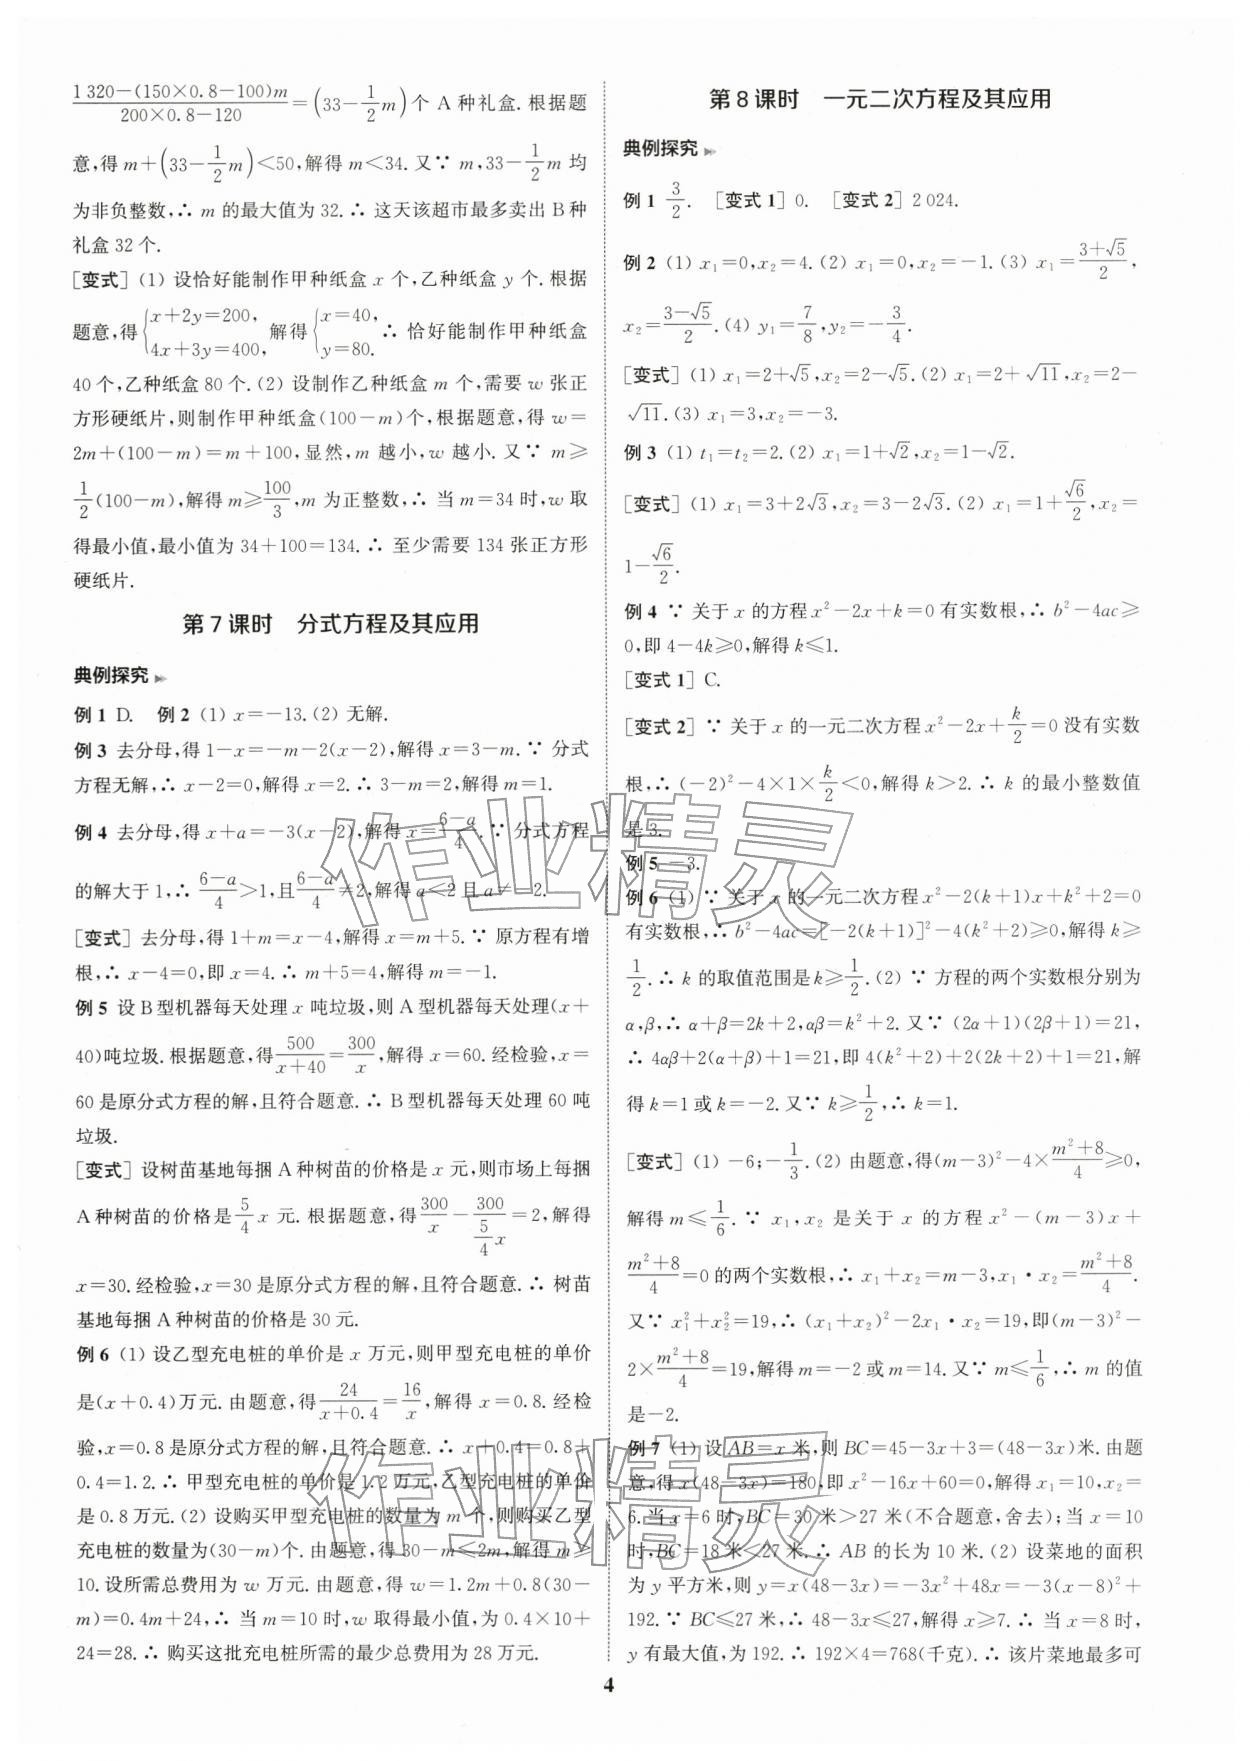 \frac{1 320-(150×0.8-100)m}{200×0.8-120}=(33-\frac{1}{2}m)个 A 种礼盒. 根据题
意,得 m+(33-\frac{1}{2}m)<50,解得 m<34. 又∵ m,33-\frac{1}{2}m 均
为非负整数,∴ m 的最大值为 32. ∴ 这天该超市最多卖出 B 种
礼盒 32 个.
[变式] (1) 设恰好能制作甲种纸盒 x 个,乙种纸盒 y 个. 根据
题意,得{x+2y=200, 4x+3y=400, 解得{x=40, y=80. ∴ 恰好能制作甲种纸盒
40 个,乙种纸盒 80 个. (2) 设制作乙种纸盒 m 个,需要 w 张正
方形硬纸片,则制作甲种纸盒(100-m)个,根据题意,得 w=
2m+(100-m)=m+100,显然,m 越小,w 越小. 又∵ m≥
\frac{1}{2}(100-m),解得 m≥\frac{100}{3},m 为正整数,∴ 当 m=34 时,w 取
得最小值,最小值为 34+100=134. ∴ 至少需要 134 张正方形
硬纸片.
第 7 课时 分式方程及其应用
典例探究
例 1 D. 例 2 (1) x=-13. (2) 无解.
例 3 去分母,得 1-x=-m-2(x-2),解得 x=3-m. ∵ 分式
方程无解,∴ x-2=0,解得 x=2. ∴ 3-m=2,解得 m=1.
例 4 去分母,得 x+a=-3(x-2),解得 x=\frac{6-a}{4}. ∵ 分式方程
的解大于 1,∴ \frac{6-a}{4}>1,且\frac{6-a}{4}≠2,解得 a<2 且 a≠-2.
[变式] 去分母,得 1+m=x-4,解得 x=m+5. ∵ 原方程有增
根,∴ x-4=0,即 x=4. ∴ m+5=4,解得 m=-1.
例 5 设 B 型机器每天处理 x 吨垃圾,则 A 型机器每天处理(x+
40)吨垃圾. 根据题意,得\frac{500}{x+40}=\frac{300}{x},解得 x=60. 经检验,x=
60 是原分式方程的解,且符合题意. ∴ B 型机器每天处理 60 吨
垃圾.
[变式] 设树苗基地每捆 A 种树苗的价格是 x 元,则市场上每捆
A 种树苗的价格是\frac{5}{4}x 元. 根据题意,得\frac{300}{x}-\frac{300}{\frac{5}{4}x}=2,解得
x=30. 经检验,x=30 是原分式方程的解,且符合题意. ∴ 树苗
基地每捆 A 种树苗的价格是 30 元.
例 6 (1) 设乙型充电桩的单价是 x 万元,则甲型充电桩的单价
是(x+0.4)万元. 由题意,得\frac{24}{x+0.4}=\frac{16}{x},解得 x=0.8. 经检
验,x=0.8 是原分式方程的解,且符合题意. ∴ x+0.4=0.8+
0.4=1.2. ∴ 甲型充电桩的单价是 1.2 万元,乙型充电桩的单价
是 0.8 万元. (2) 设购买甲型充电桩的数量为 m 个,则购买乙型
充电桩的数量为(30-m)个. 由题意,得 30-m≤2m,解得 m≥
10. 设所需总费用为 w 万元. 由题意,得 w=1.2m+0.8(30-
m)=0.4m+24,∴ 当 m=10 时,w 取得最小值,为 0.4×10+
24=28. ∴ 购买这批充电桩所需的最少总费用为 28 万元.
第 8 课时 一元二次方程及其应用
典例探究
例 1 \frac{3}{2}. [变式 1] 0. [变式 2] 2 024.
例 2 (1) x₁=0,x₂=4. (2) x₁=0,x₂=-1. (3) x₁=\frac{3+√5}{2},
x₂=\frac{3-√5}{2}. (4) y₁=\frac{7}{8},y₂=-\frac{3}{4}.
[变式] (1) x₁=2+√5,x₂=2-√5. (2) x₁=2+√11,x₂=2-
√11. (3) x₁=3,x₂=-3.
例 3 (1) t₁=t₂=2. (2) x₁=1+√2,x₂=1-√2.
[变式] (1) x₁=3+2√3,x₂=3-2√3. (2) x₁=1+\frac{√6}{2},x₂=
1-\frac{√6}{2}.
例 4 ∵ 关于 x 的方程 x²-2x+k=0 有实数根,∴ b²-4ac≥
0,即 4-4k≥0,解得 k≤1.
[变式 1] C.
[变式 2] ∵ 关于 x 的一元二次方程 x²-2x+\frac{k}{2}=0 没有实数
根,∴ (-2)²-4×1×\frac{k}{2}<0,解得 k>2. ∴ k 的最小整数值
是 3.
例 5 -3.
例 6 (1) ∵ 关于 x 的一元二次方程 x²-2(k+1)x+k²+2=0
有实数根,∴ b²-4ac=[-2(k+1)]²-4(k²+2)≥0,解得 k≥
\frac{1}{2}. ∴ k 的取值范围是 k≥\frac{1}{2}. (2) ∵ 方程的两个实数根分别为
α,β,∴ α+β=2k+2,αβ=k²+2. 又∵ (2α+1)(2β+1)=21,
∴ 4αβ+2(α+β)+1=21,即 4(k²+2)+2(2k+2)+1=21,解
得 k=1 或 k=-2. 又∵ k≥\frac{1}{2},∴ k=1.
[变式] (1) -6;-\frac{1}{3}. (2) 由题意,得(m-3)²-4×\frac{m²+8}{4}≥0,
解得 m≤\frac{1}{6}. ∵ x₁,x₂ 是关于 x 的方程 x²-(m-3)x+
\frac{m²+8}{4}=0 的两个实数根,∴ x₁+x₂=m-3,x₁·x₂=\frac{m²+8}{4}.
又∵ x₁²+x₂²=19,∴ (x₁+x₂)²-2x₁·x₂=19,即(m-3)²-
2×\frac{m²+8}{4}=19,解得 m=-2 或 m=14. 又∵ m≤\frac{1}{6},∴ m 的值
是-2.
例 7 (1) 设 AB=x 米,则 BC=45-3x+3=(48-3x)米. 由题
意,得 x(48-3x)=180,即 x²-16x+60=0,解得 x₁=10,x₂=
6. 当 x=6 时,BC=30 米>27 米(不合题意,舍去);当 x=10
时,BC=18 米<27 米. ∴ AB 的长为 10 米. (2) 设菜地的面积
为 y 平方米,则 y=x(48-3x)=-3x²+48x=-3(x-8)²+
192. ∵ BC≤27 米,∴ 48-3x≤27,解得 x≥7. ∴ 当 x=8 时,
y 有最大值,为 192. ∴ 192×4=768(千克). ∴ 该片菜地最多可
4
作业精灵
作业精灵